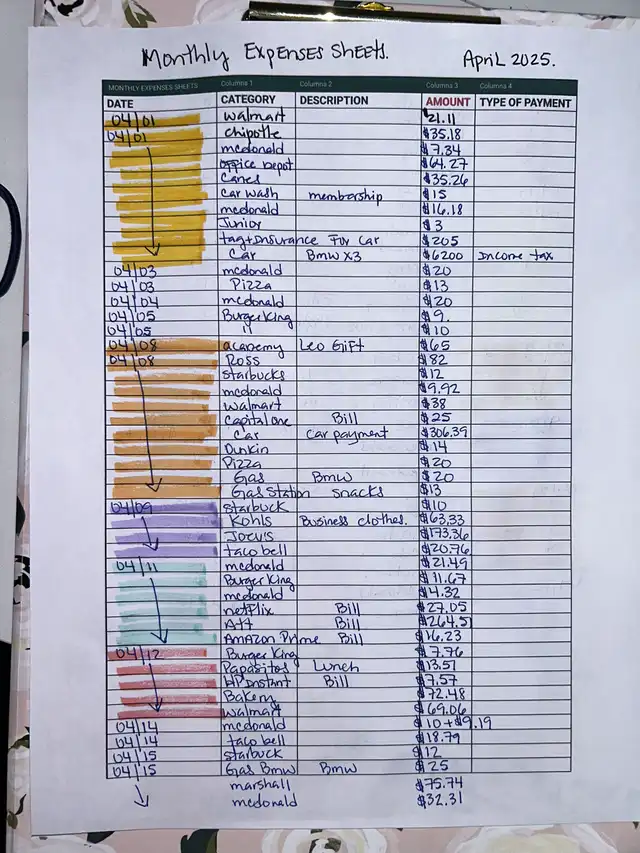 Monthly Expenses Sheets. April 2025.
MONTHLY EXPENSES SHEETS Columna 1 Columna 2 Columna 3 Columna 4
DATE CATEGORY DESCRIPTION AMOUNT TYPE OF PAYMENT
04/01 walmart $21.11
04/01 chipotle $35.18
mcdonald $7.34
office Depot $64.27
Canes $35.26
Car wash membership $15
mcdonald $16.18
Junior $3
tag+Insurance For Car $205
Car BMW X3 $6200 Income tax
04/03 mcdonald $20
04/03 Pizza $13
04/04 mcdonald $20
04/05 Burger King $9.
04/05 11 $10
04/08 academy Leo Gift $65
04/08 Ross $82
starbucks $12
mcdonald $9.92
walmart $38
Capital one Bill $25
Car Car payment $306.39
Dunkin $14
Pizza $20
Gas Bmw $20
Gas Station snacks $13
04/09 starbuck $10
Kohls Business clothes. $63.33
$173.36
taco bell $20.76
04/11 mcdonald $21.49
Burger King $11.67
mcdonald $4.32
netflix Bill $27.05
Att Bill $264.51
Amazon Prime Bill $16.23
04/12 Burger King $7.76
Papasitos Lunch $13.51
HP Instant Bill $7.57
Bakery $72.48
walmart $69.06
04/14 mcdonald $10+$9.19
04/14 taco bell $18.79
04/15 starbuck $12
04/15 Gas Bmw Bmw $25
marshall $75.74
mcdonald $32.31